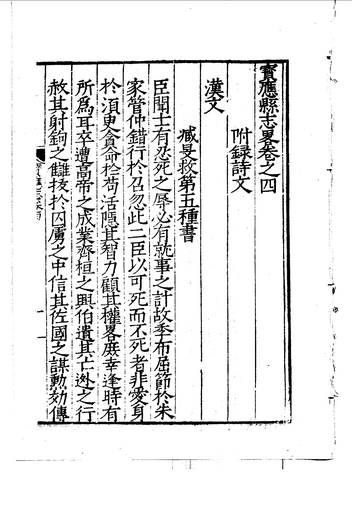 寶應縣志畧卷之四
附録詩文
漢文
臧旻救第五種書
臣聞士有忍死之辱必有就事之計故季布屈節於朱
家管仲錯行於召忽此二臣以可死而不死者非愛身
於須臾貪命於苟活隠其智力顧其權畧庶幸逢時有
所為耳卒遭高帝之成業齊桓之興伯遺其亡逃之行
赦其射鉤之讎拔於囚虜之中信其佐國之謀勲効傳